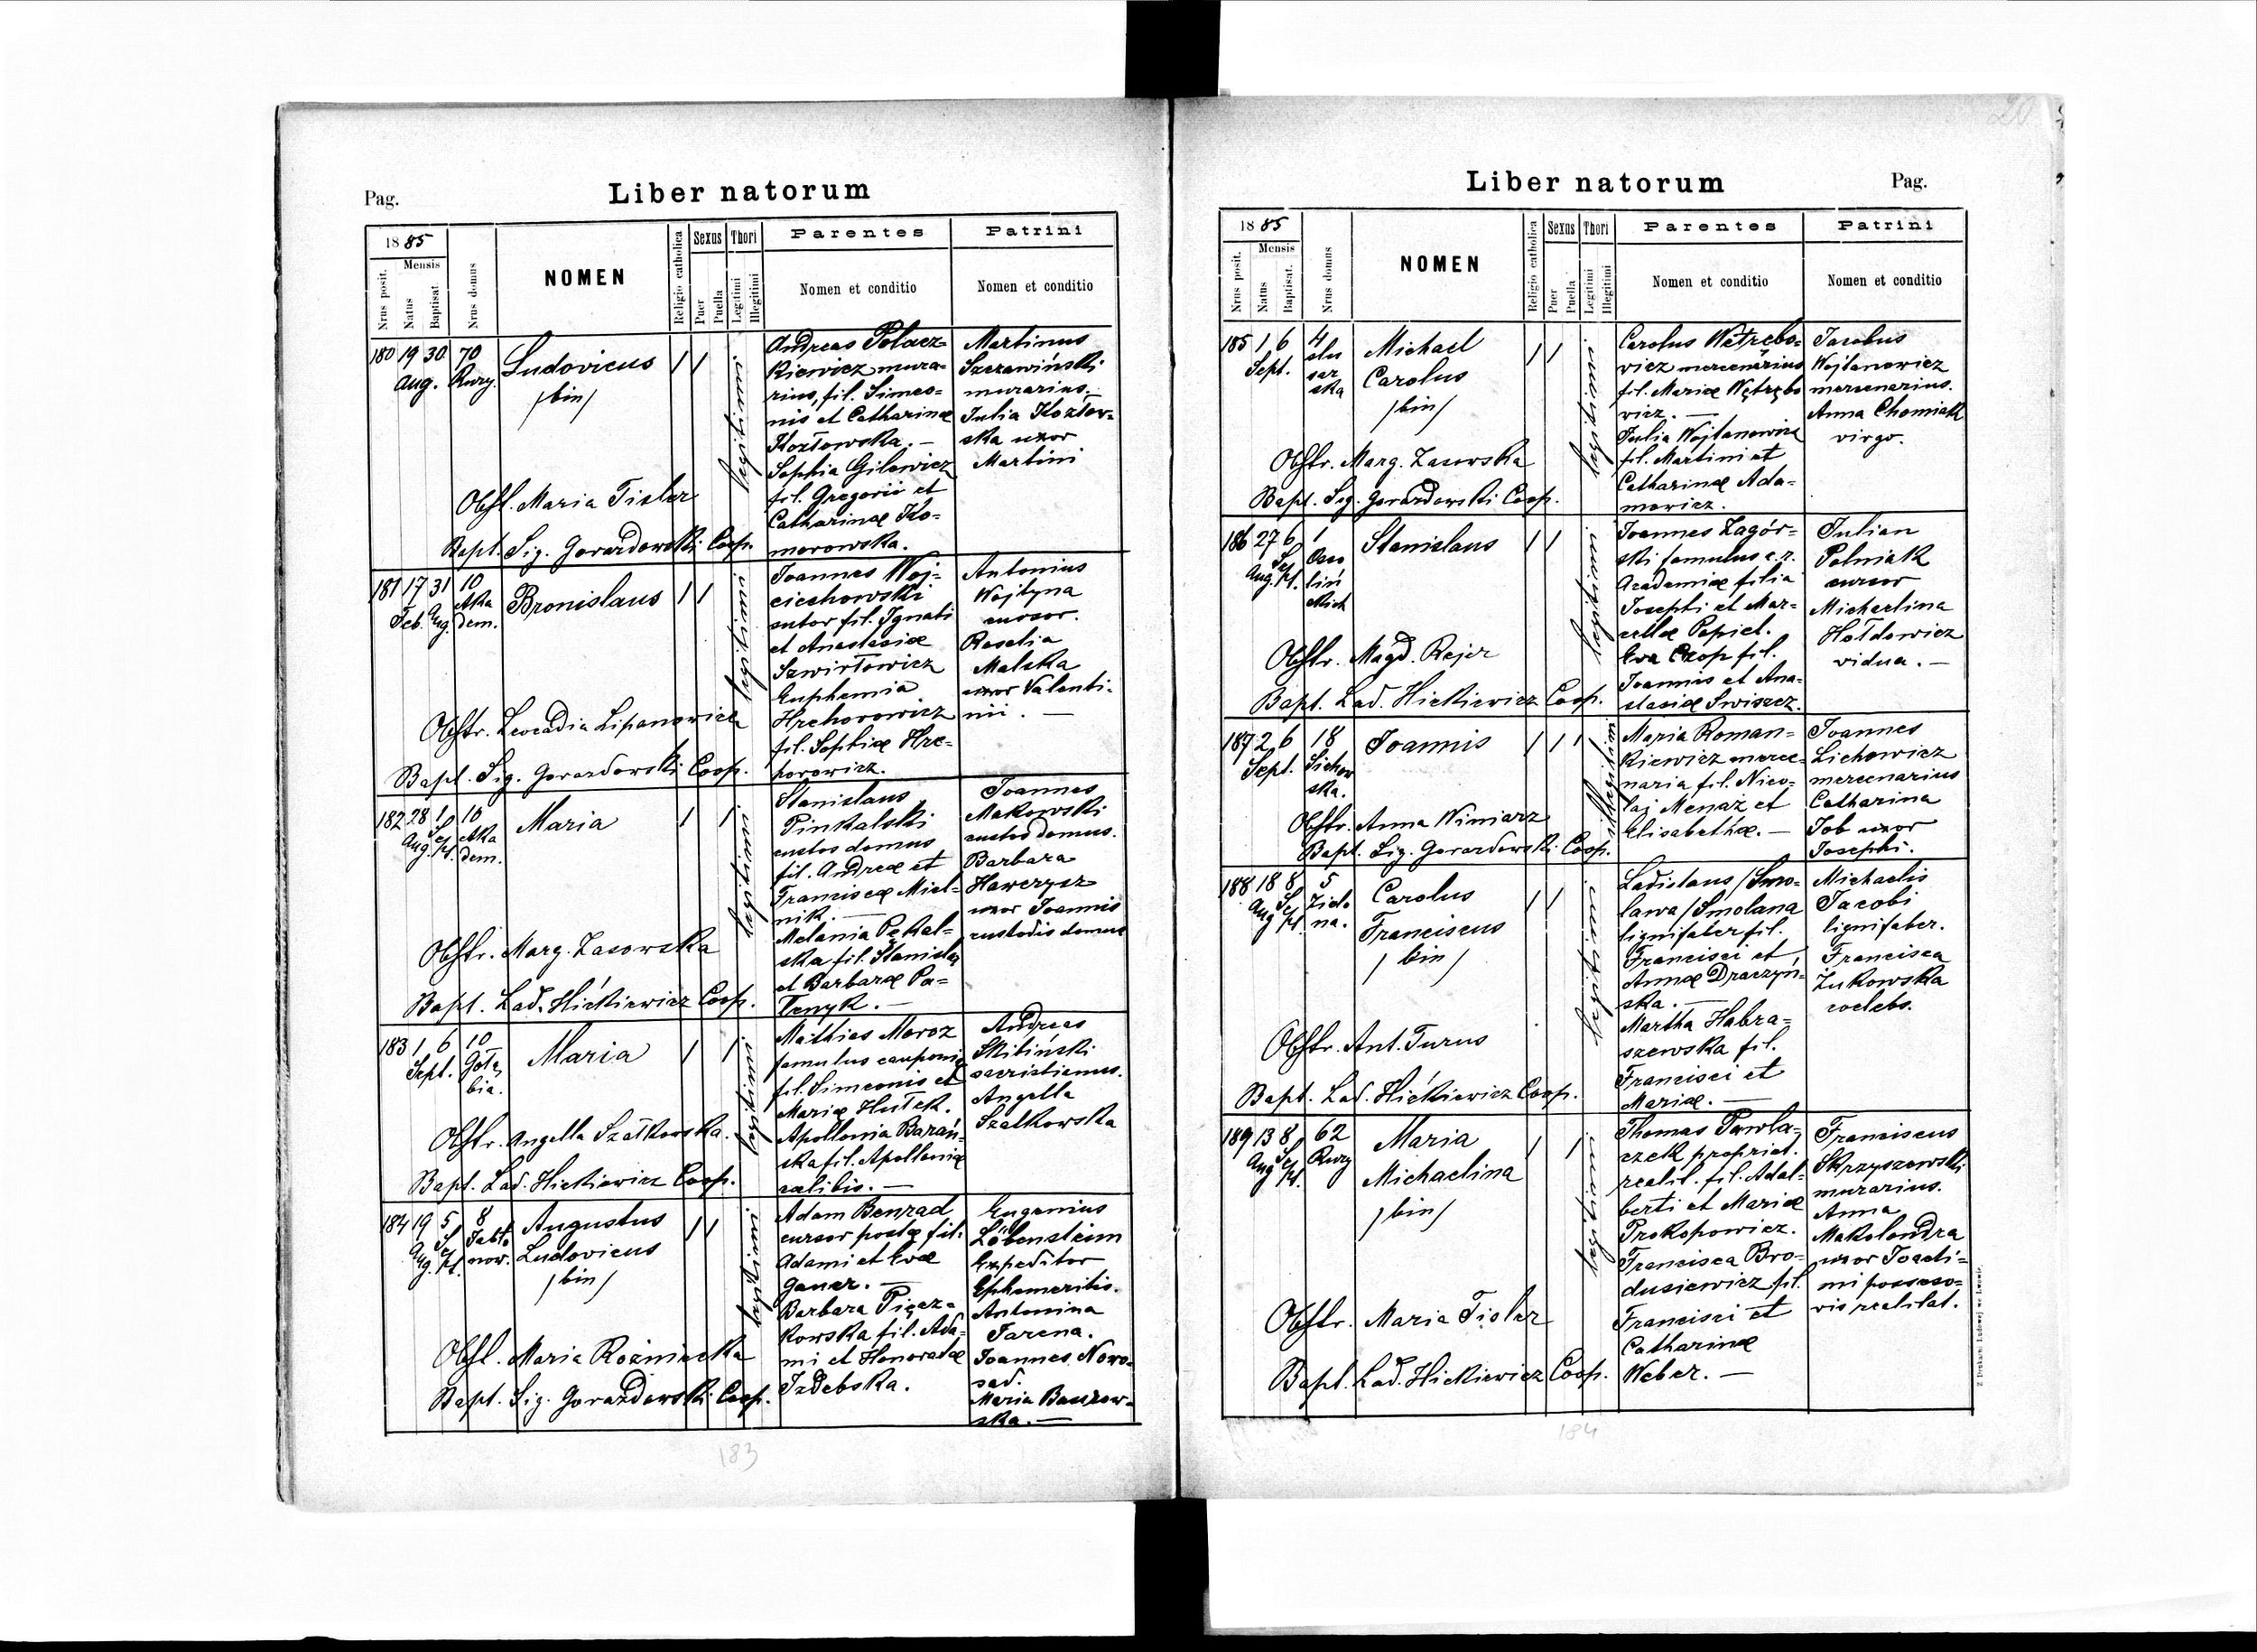 Pag.
Liber natorum
1885
Mensis
Nrus posit.
Natus
Baptisat.
Nrus domus
NOMEN
Religio catholica
Sexus
Puer
Puella
Thori
Legitimi
Illegitimi
Parentes
Nomen et conditio
Patrini
Nomen et conditio
180 19 30 70
Aug. Rury.
Ludovicus
/bin/
Obst. Maria Tisler
Bapt. Sig. Gorazdowski Coop.
legitimi
Andreas Polacz=
kiewicz mura=
rius, fil. Simeo=
nis et Catharinæ
Kozłowska. —
Sophia Gilewicz
fil. Gregorii et
Catharinæ Ko=
morowska.
Martinus
Szczawiński
murarius.
Julia Kozłow=
ska uxor
Martini
181 17 31 10
Feb. Aug. Aka
dem.
Bronislaus
Obstr. Leocadia Lipanowicz
Bapt. Sig. Gorazdowski Coop.
legitimi
Joannes Woj=
ciechowski
sutor fil. Ignati
et Anastasiæ
Szwirtowicz
Euphemia
Hrehorowicz
fil. Sophiæ Hre=
horowicz.
Antonius
Wojtyna
cursor.
Rosalia
Malska
uxor Valenti=
nii. —
182 28 1 10
Aug. Sept. Aka
dem.
Maria
Obstr. Marg. Zasowska
Bapt. Lad. Hićkiewicz Coop.
legitimi
Stanislaus
Pinkalski
custos domus
fil. Andreæ et
Franciscæ Miel=
nik. —
Melania Pękal=
ska fil. Stanislai
et Barbaræ Pa=
Tenyk. —
Joannes
Makowski
custos domus.
Barbara
Hawrysz
uxor Joannis
custodis domus
183 1 6 10
Sept. Gołę
bia.
Maria
Obstr. Angella Szałkowska.
Bapt. Lad. Hićkiewicz Coop.
legitimi
Mathias Moroz
famulus cauponiæ
fil. Simeonis et
Mariæ Hułek.
Apollonia Barań=
ska fil. Apolloniæ
cælibis. —
Andreas
Skibiński
sacristianus.
Angella
Szalkowska
184 19 5 8
Aug. Sept. Jabło
now.
Augustus
Ludovicus
/bin/
Obst. Maria Rozniecka
Bapt. Sig. Gorazdowski Coop.
legitimi
Adam Benzad
cursor postæ fil.
Adami et Evæ
Ganer. —
Barbara Pięcz=
kowska fil. Ada=
mi et Honoratæ
Izdebska.
Eugenius
Löbenstein
Expeditor
Ephemeritis.
Antonina
Jarena.
Joannes Nowo=
sad.
Maria Baurow=
ska. —
183
20
Liber natorum
Pag.
1885
Mensis
Nrus posit.
Natus
Baptisat.
Nrus domus
NOMEN
Religio catholica
Sexus
Puer
Puella
Thori
Legitimi
Illegitimi
Parentes
Nomen et conditio
Patrini
Nomen et conditio
185 1 6 4
Sept. slu
sar
ska
Michael
Carolus
/bin/
Obstr. Marg. Zasowska
Bapt. Sig. Gorazdowski Coop.
legitimi
Carolus Wętrzębo=
wicz mercenarius
fil. Mariæ Wętrzębo
wicz. —
Julia Wojtanowicz
fil. Martini et
Catharinæ Ada=
mowicz.
Jacobus
Wojtanowicz
mercenarius.
Anna Chomiak
virgo.
186 27 6 1
Aug. Sept. Osso
liń
skich
Stanislaus
Obstr. Magd. Rejer
Bapt. Lad. Hićkiewicz Coop.
legitimi
Joannes Zagór=
ski famulus c.r.
Academiæ filia
Josephi et Mar=
cellæ Papiel.
Eva Czop fil.
Joannis et Ana=
stasiæ Swiszcz.
Julian
Polniak
cursor
Michelina
Hołdowicz
vidua. —
187 2 6 18
Sept. Sichow
ska.
Joannis
Obstr. Anna Winiarz
Bapt. Sig. Gorazdowski Coop.
illegitimi
Maria Roman=
kiewicz merce=
naria fil. Nico=
lai Menaż et
Elisabethæ. —
Joannes
Lichowicz
mercenarius
Catharina
Job uxor
Josephi.
188 18 8 5
Aug Sept. Zielo
na.
Carolus
Franciscus
/bin/
Obstr. Ant. Turus
Bapt. Lad. Hićkiewicz Coop.
legitimi
Ladislaus /Smo=
lawa/ Smolana
lignifaber fil.
Francisci et
Annæ Draczyń=
ska. —
Martha Habra=
szewska fil.
Francisci et
Mariæ. —
Michaelis
Jacobi
lignifaber.
Francisca
Żukowska
coelebs.
189 13 8 62
Aug Sept. Rury
Maria
Michaelina
/bin/
Obstr. Maria Tisler
Bapt. Lad. Hickiewicz Coop.
legitimi
Thomas Pawla=
czek propriet.
realit. fil. Adal=
berti et Mariæ
Prokopowicz.
Francisca Bro=
dusiewicz fil.
Francisci et
Catharinæ
Weber. —
Franciscus
Skrzyszowski
murarius.
Anna
Makolondra
uxor Joachi=
mi possesso=
ris realitat.
Z Drukarni Ludowej we Lwowie.
184